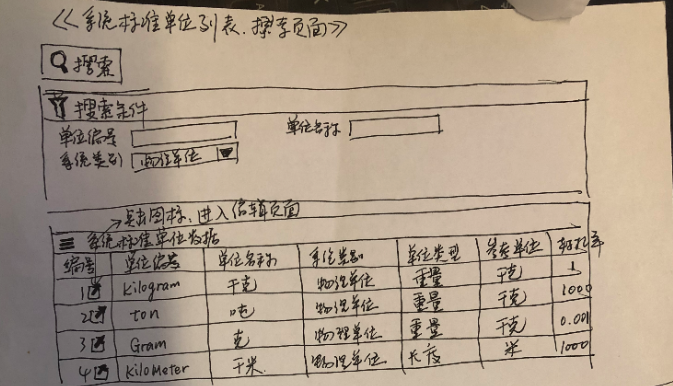 《系统标准单位列表、搜索页面》
搜索
搜索条件
单位编号 单位名称
系统类别 物理单位
点击图标,进入编辑页面
系统标准单位数据
编号 单位编号 单位名称 系统类别 单位类型 参考单位 转换率
1 Kilogram 千克 物理单位 重量 千克 1
2 ton 吨 物理单位 重量 千克 1000
3 Gram 克 物理单位 重量 千克 0.001
4 KiloMeter 千米 物理单位 长度 米 1000